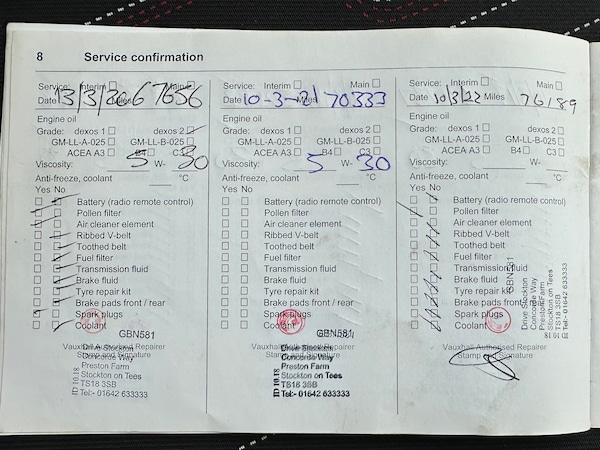 8 Service confirmation
Service: Interim □ Main □
Date 13/3/20 Miles 67656
Engine oil
Grade: dexos 1 □ dexos 2 □
GM-LL-A-025 □ GM-LL-B-025 □
ACEA A3 □ B4 □ C3 □
Viscosity: 5 W- 30
Anti-freeze, coolant °C
Yes No
Battery (radio remote control)
Pollen filter
Air cleaner element
Ribbed V-belt
Toothed belt
Fuel filter
Transmission fluid
Brake fluid
Tyre repair kit
Brake pads front / rear
Spark plugs
Coolant
GBN581
Vauxhall Authorised Repairer
Stamp and Signature
Drive Stockton
Concorde Way
Preston Farm
Stockton on Tees
TS18 3SB
Tel:- 01642 633333
ID 10.18
Service: Interim □ Main □
Date 10-3-21 Miles 70333
Engine oil
Grade: dexos 1 □ dexos 2 □
GM-LL-A-025 □ GM-LL-B-025 □
ACEA A3 □ B4 □ C3 □
Viscosity: 5 W- 30
Anti-freeze, coolant °C
Yes No
Battery (radio remote control)
Pollen filter
Air cleaner element
Ribbed V-belt
Toothed belt
Fuel filter
Transmission fluid
Brake fluid
Tyre repair kit
Brake pads front / rear
Spark plugs
Coolant
GBN581
Vauxhall Authorised Repairer
Stamp and Signature
Drive Stockton
Concorde Way
Preston Farm
Stockton on Tees
TS18 3SB
Tel:- 01642 633333
ID 10.18
Service: Interim □ Main □
Date 10/3/22 Miles 76189
Engine oil
Grade: dexos 1 □ dexos 2 □
GM-LL-A-025 □ GM-LL-B-025 □
ACEA A3 □ B4 □ C3 □
Viscosity: W-
Anti-freeze, coolant °C
Yes No
Battery (radio remote control)
Pollen filter
Air cleaner element
Ribbed V-belt
Toothed belt
Fuel filter
Transmission fluid
Brake fluid
Tyre repair kit
Brake pads front / rear
Spark plugs
Coolant
Vauxhall Authorised Repairer
Stamp and Signature
GBN581
Drive Stockton
Concorde Way
Preston Farm
Stockton on Tees
TS18 3SB
Tel:- 01642 633333